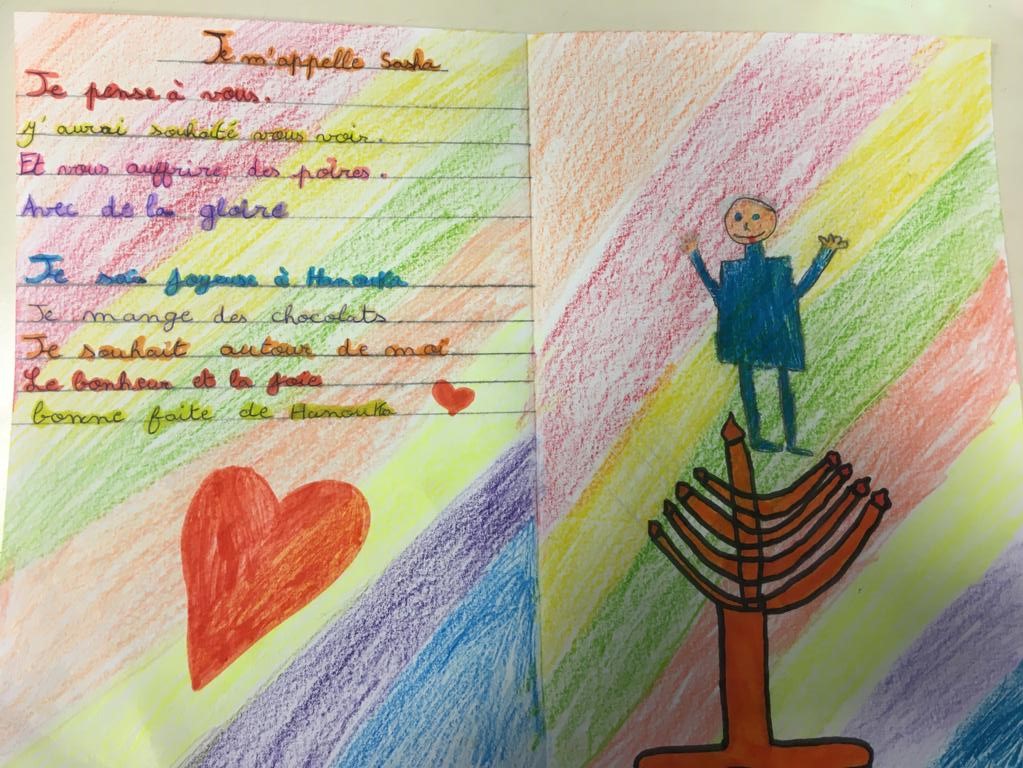 Je m'appelle Sasha
Je pense à vous.
J'aurai souhaité vous voir.
Et vous auffrire des poires.
Avec de la gloire
Je suis joyeuse à Hanouka
Je mange des chocolats.
Je souhait autour de moi
Le bonheur et la joie
bonne faite de Hanouka